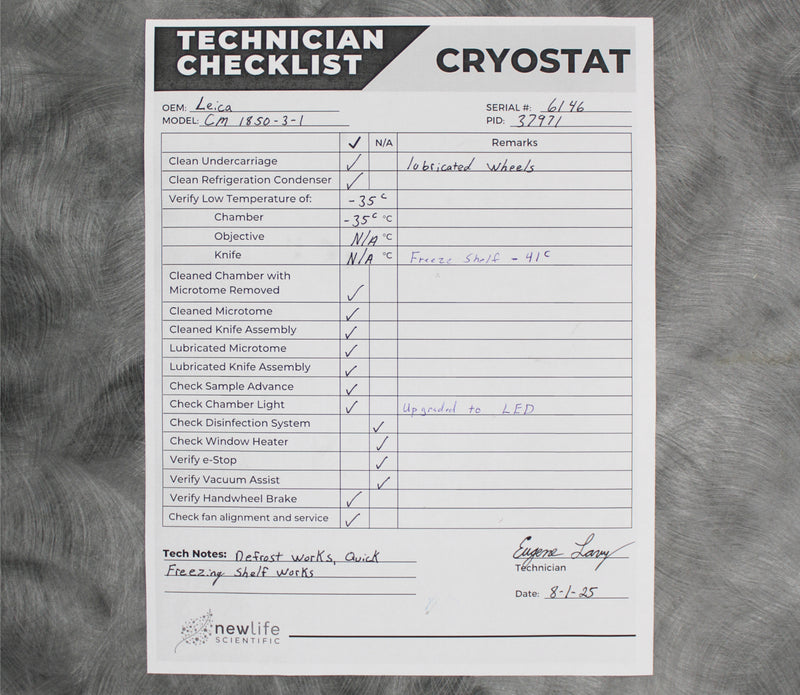 TECHNICIAN
CHECKLIST
CRYOSTAT
OEM: Leica
SERIAL #: 6146
MODEL: CM 1850-3-1
PID: 37971
✓ N/A Remarks
Clean Undercarriage ✓ lubricated wheels
Clean Refrigeration Condenser ✓
Verify Low Temperature of: -35 c
Chamber -35 c °C
Objective N/A °C
Knife N/A °C Freeze Shelf - 41 c
Cleaned Chamber with
Microtome Removed ✓
Cleaned Microtome ✓
Cleaned Knife Assembly ✓
Lubricated Microtome ✓
Lubricated Knife Assembly ✓
Check Sample Advance ✓
Check Chamber Light ✓ Upgraded to LED
Check Disinfection System ✓
Check Window Heater ✓
Verify e-Stop ✓
Verify Vacuum Assist ✓
Verify Handwheel Brake ✓
Check fan alignment and service ✓
Tech Notes: Defrost works, Quick
Freezing Shelf Works
Eugene
Technician
Date: 8-1-25
newlife
SCIENTIFIC